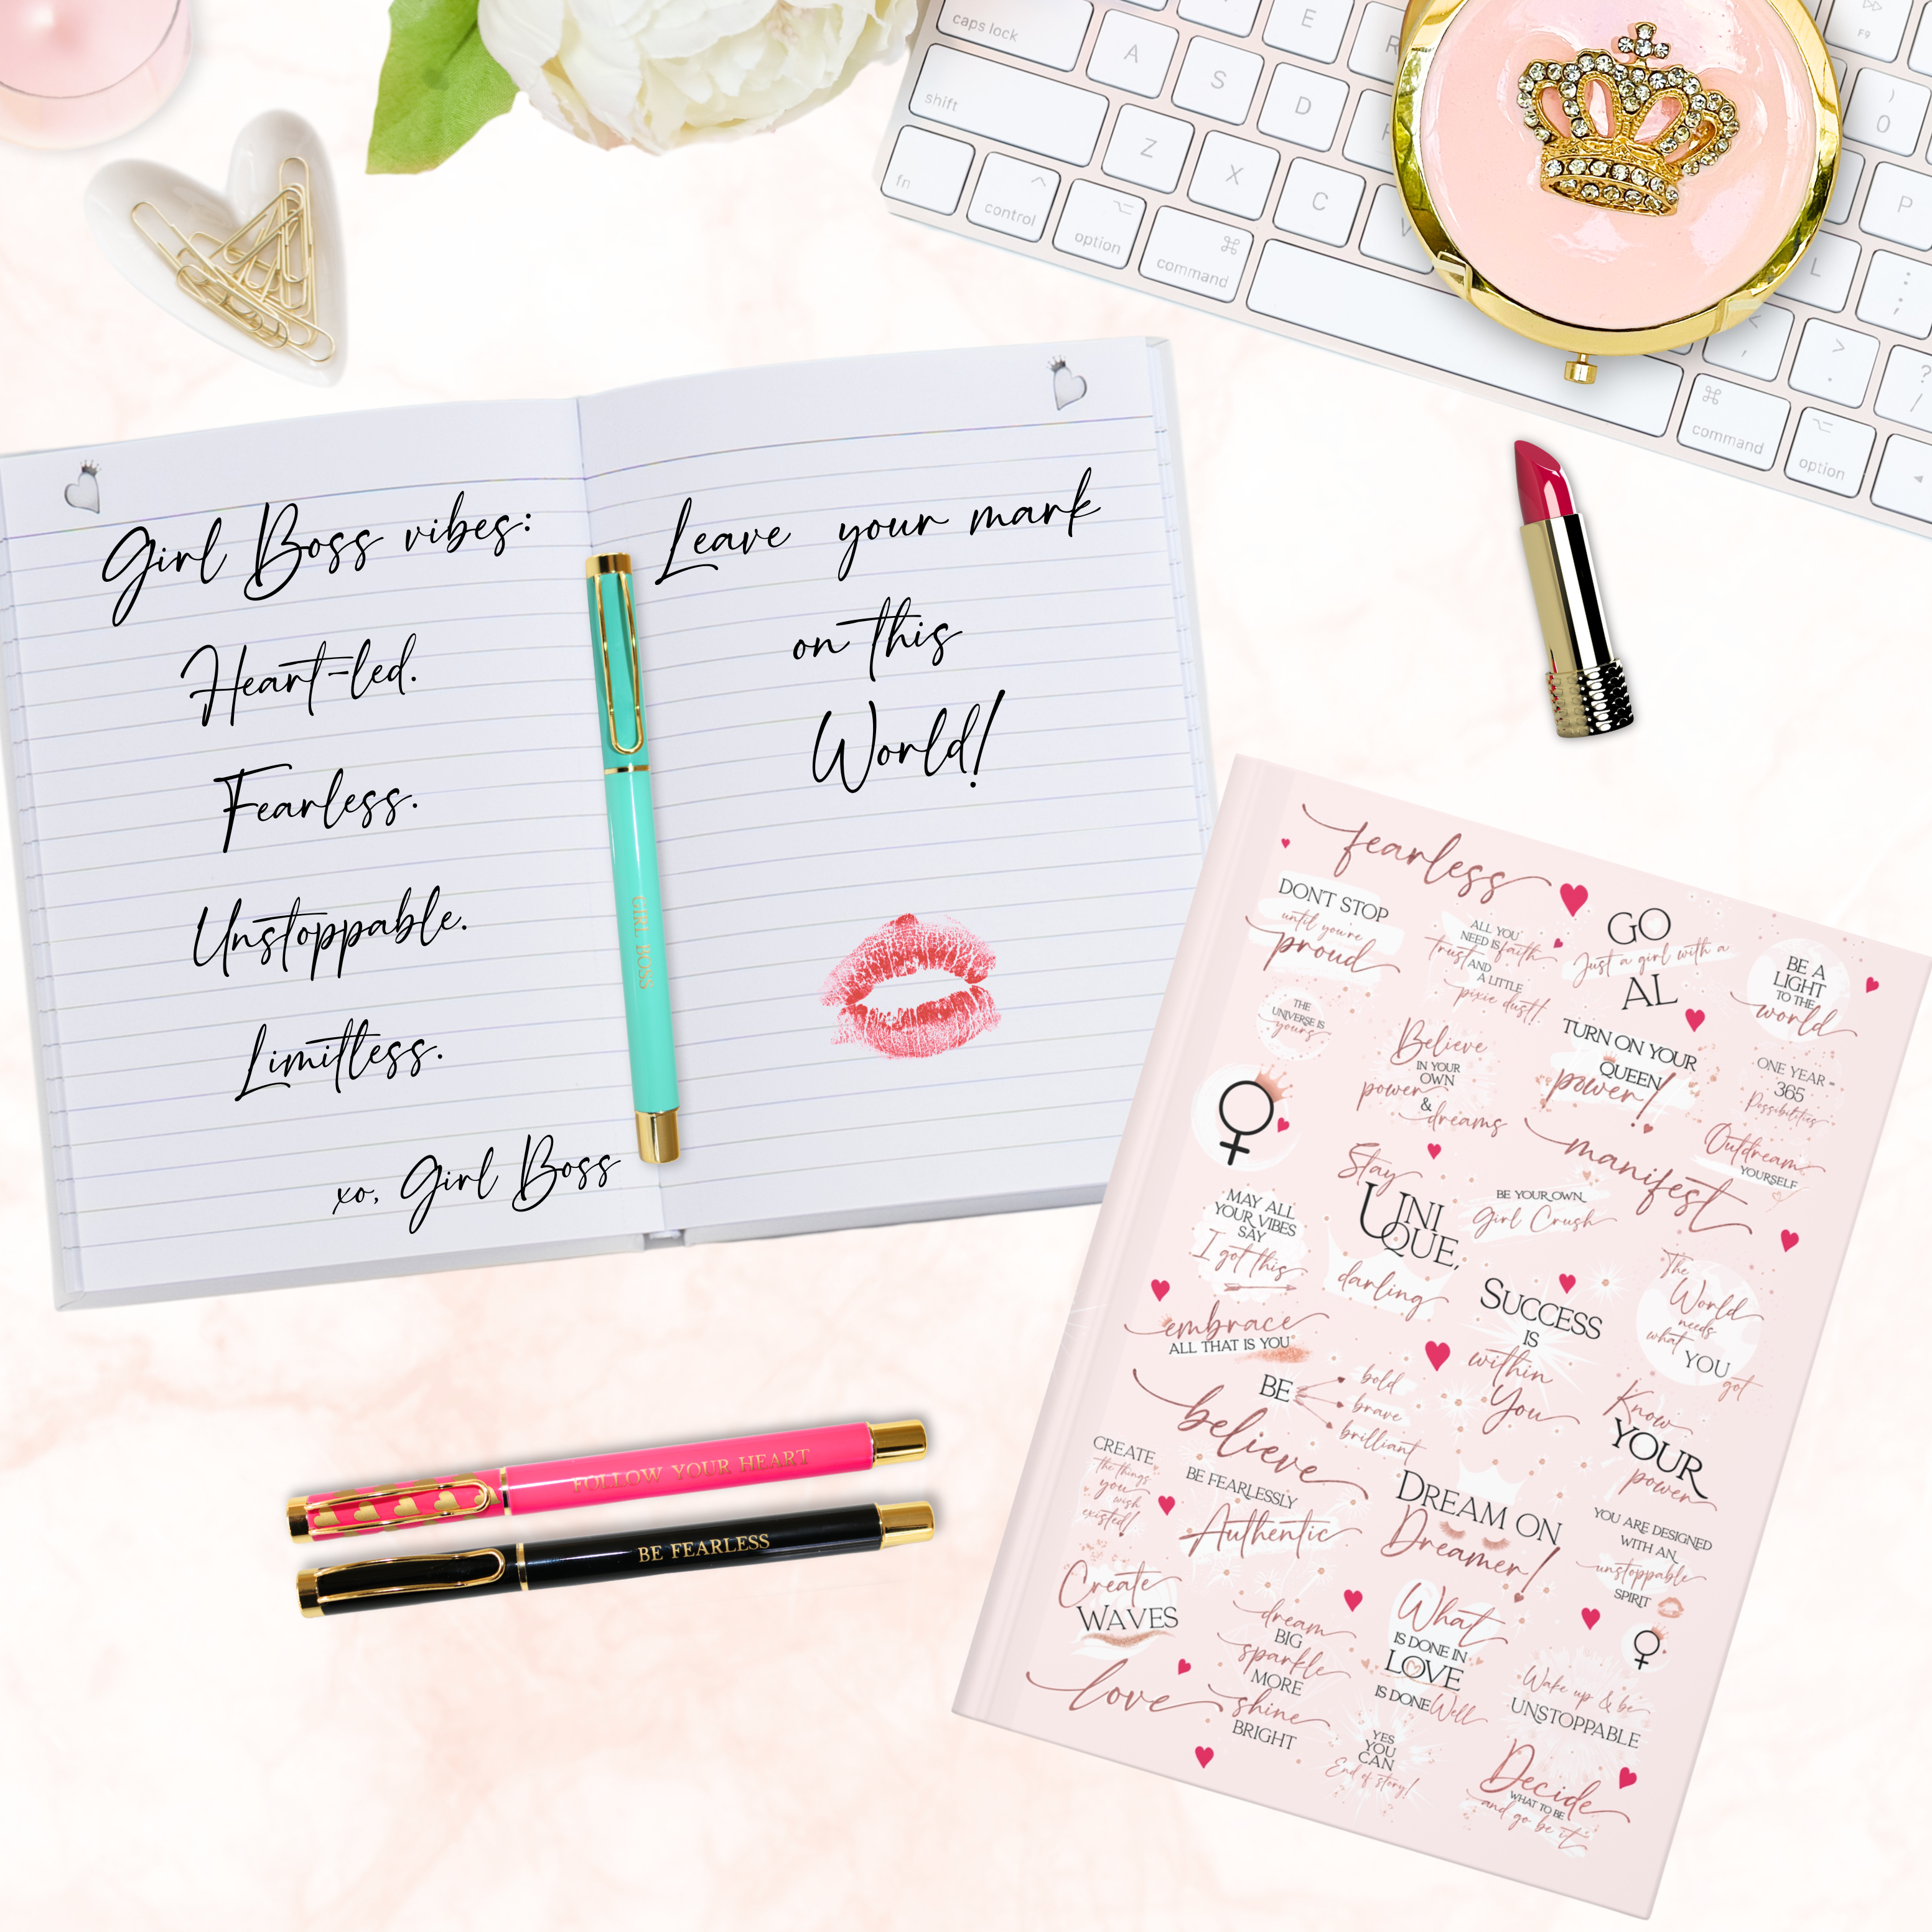 caps lock
A
S
D
E
R
F9
)
0
shift
Z
X
C
V
P
fn
control
option
command
L
:
;
<
,
>
.
?
/
command
option
Girl Boss vibes:
Heart-led.
Fearless.
Unstoppable.
Limitless.
xo, Girl Boss
Leave your mark
on this
World!
GIRL BOSS
FOLLOW YOUR HEART
BE FEARLESS
fearless
DON'T STOP
until you're
proud
ALL YOU
NEED IS faith
trust AND
A LITTLE
pixie dust!
GO
Just a girl with a
AL
BE A
LIGHT
TO THE
world
THE
UNIVERSE IS
yours
Believe
IN YOUR
OWN
power
&
dreams
TURN ON YOUR
QUEEN
power!
ONE YEAR =
365
Possibilities
manifest
Outdream
YOURSELF
MAY ALL
YOUR VIBES
SAY
I got this
Stay
UNI
QUE,
darling
BE YOUR OWN
Girl Crush
The
World
needs
what
YOU
got
embrace
ALL THAT IS YOU
SUCCESS
IS
within
You
BE
bold
brave
brilliant
believe
Know
YOUR
power
CREATE
the things
you
wish
existed!
BE FEARLESSLY
Authentic
DREAM ON
Dreamer!
YOU ARE DESIGNED
WITH AN
unstoppable
SPIRIT
Create
WAVES
dream
BIG
sparkle
MORE
shine
BRIGHT
What
IS DONE IN
LOVE
IS DONE Well
love
Wake up & be
UNSTOPPABLE
YES
YOU
CAN
End of story!
Decide
WHAT TO BE
and go be it